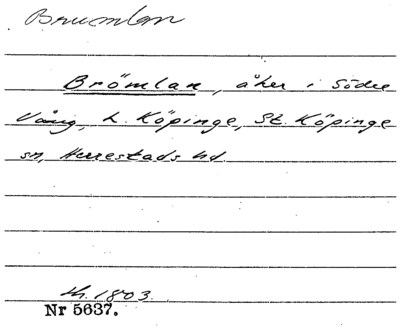 Brumlan
Brömlan, åker i Södre
Vång, L. Köpinge, St. Köpinge
sn, Herrestads hd.
lh. 1803.
Nr 5637.